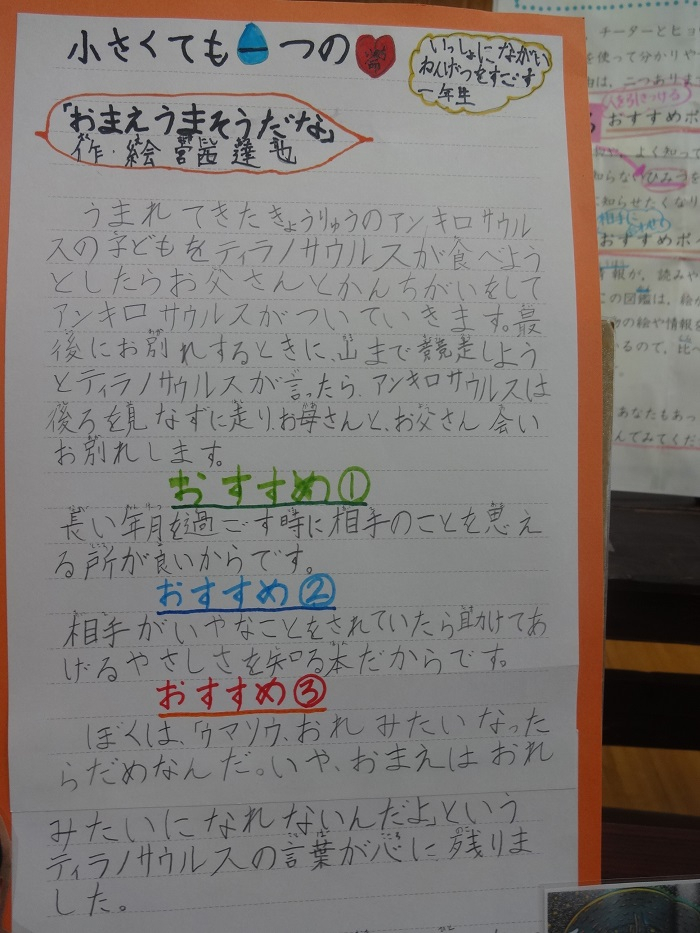 小さくても一つの命
いっしょにながい
ねんげつをすごす
一年生
「おまえうまそうだな」
作・絵 宮西達也
うまれてきたきょうりゅうのアンキロサウル
スの子どもをティラノサウルスが食べよう
としたらお父さんとかんちがいをして
アンキロサウルスがついていきます。最
後にお別れするときに、山まで競走しよう
とティラノサウルスが言ったら、アンキロサウルスは
後ろを見なずに走り、お母さんと、お父さん会い
お別れします。
おすすめ①
長い年月を過ごす時に相手のことを思え
る所が良いからです。
おすすめ②
相手がいやなことをされていたら助けてあ
げるやさしさを知る本だからです。
おすすめ③
ぼくは、「ウマソウ、おれみたいなった
らだめなんだ。いや、おまえはおれ
みたいになれないんだよ」という
ティラノサウルスの言葉が心に残りま
した。
チーターとヒョ
を使って分かりや
は、二つありす
人を引きつける
おすすめポ
よく知って
知らないひみつを
に知らせたくなり
相手に
合わせる
おすすめポ
情報が、読みや
この図鑑は、絵が
の絵や情報を
いるので、比べ
あなたもあっ
んでみてくだ